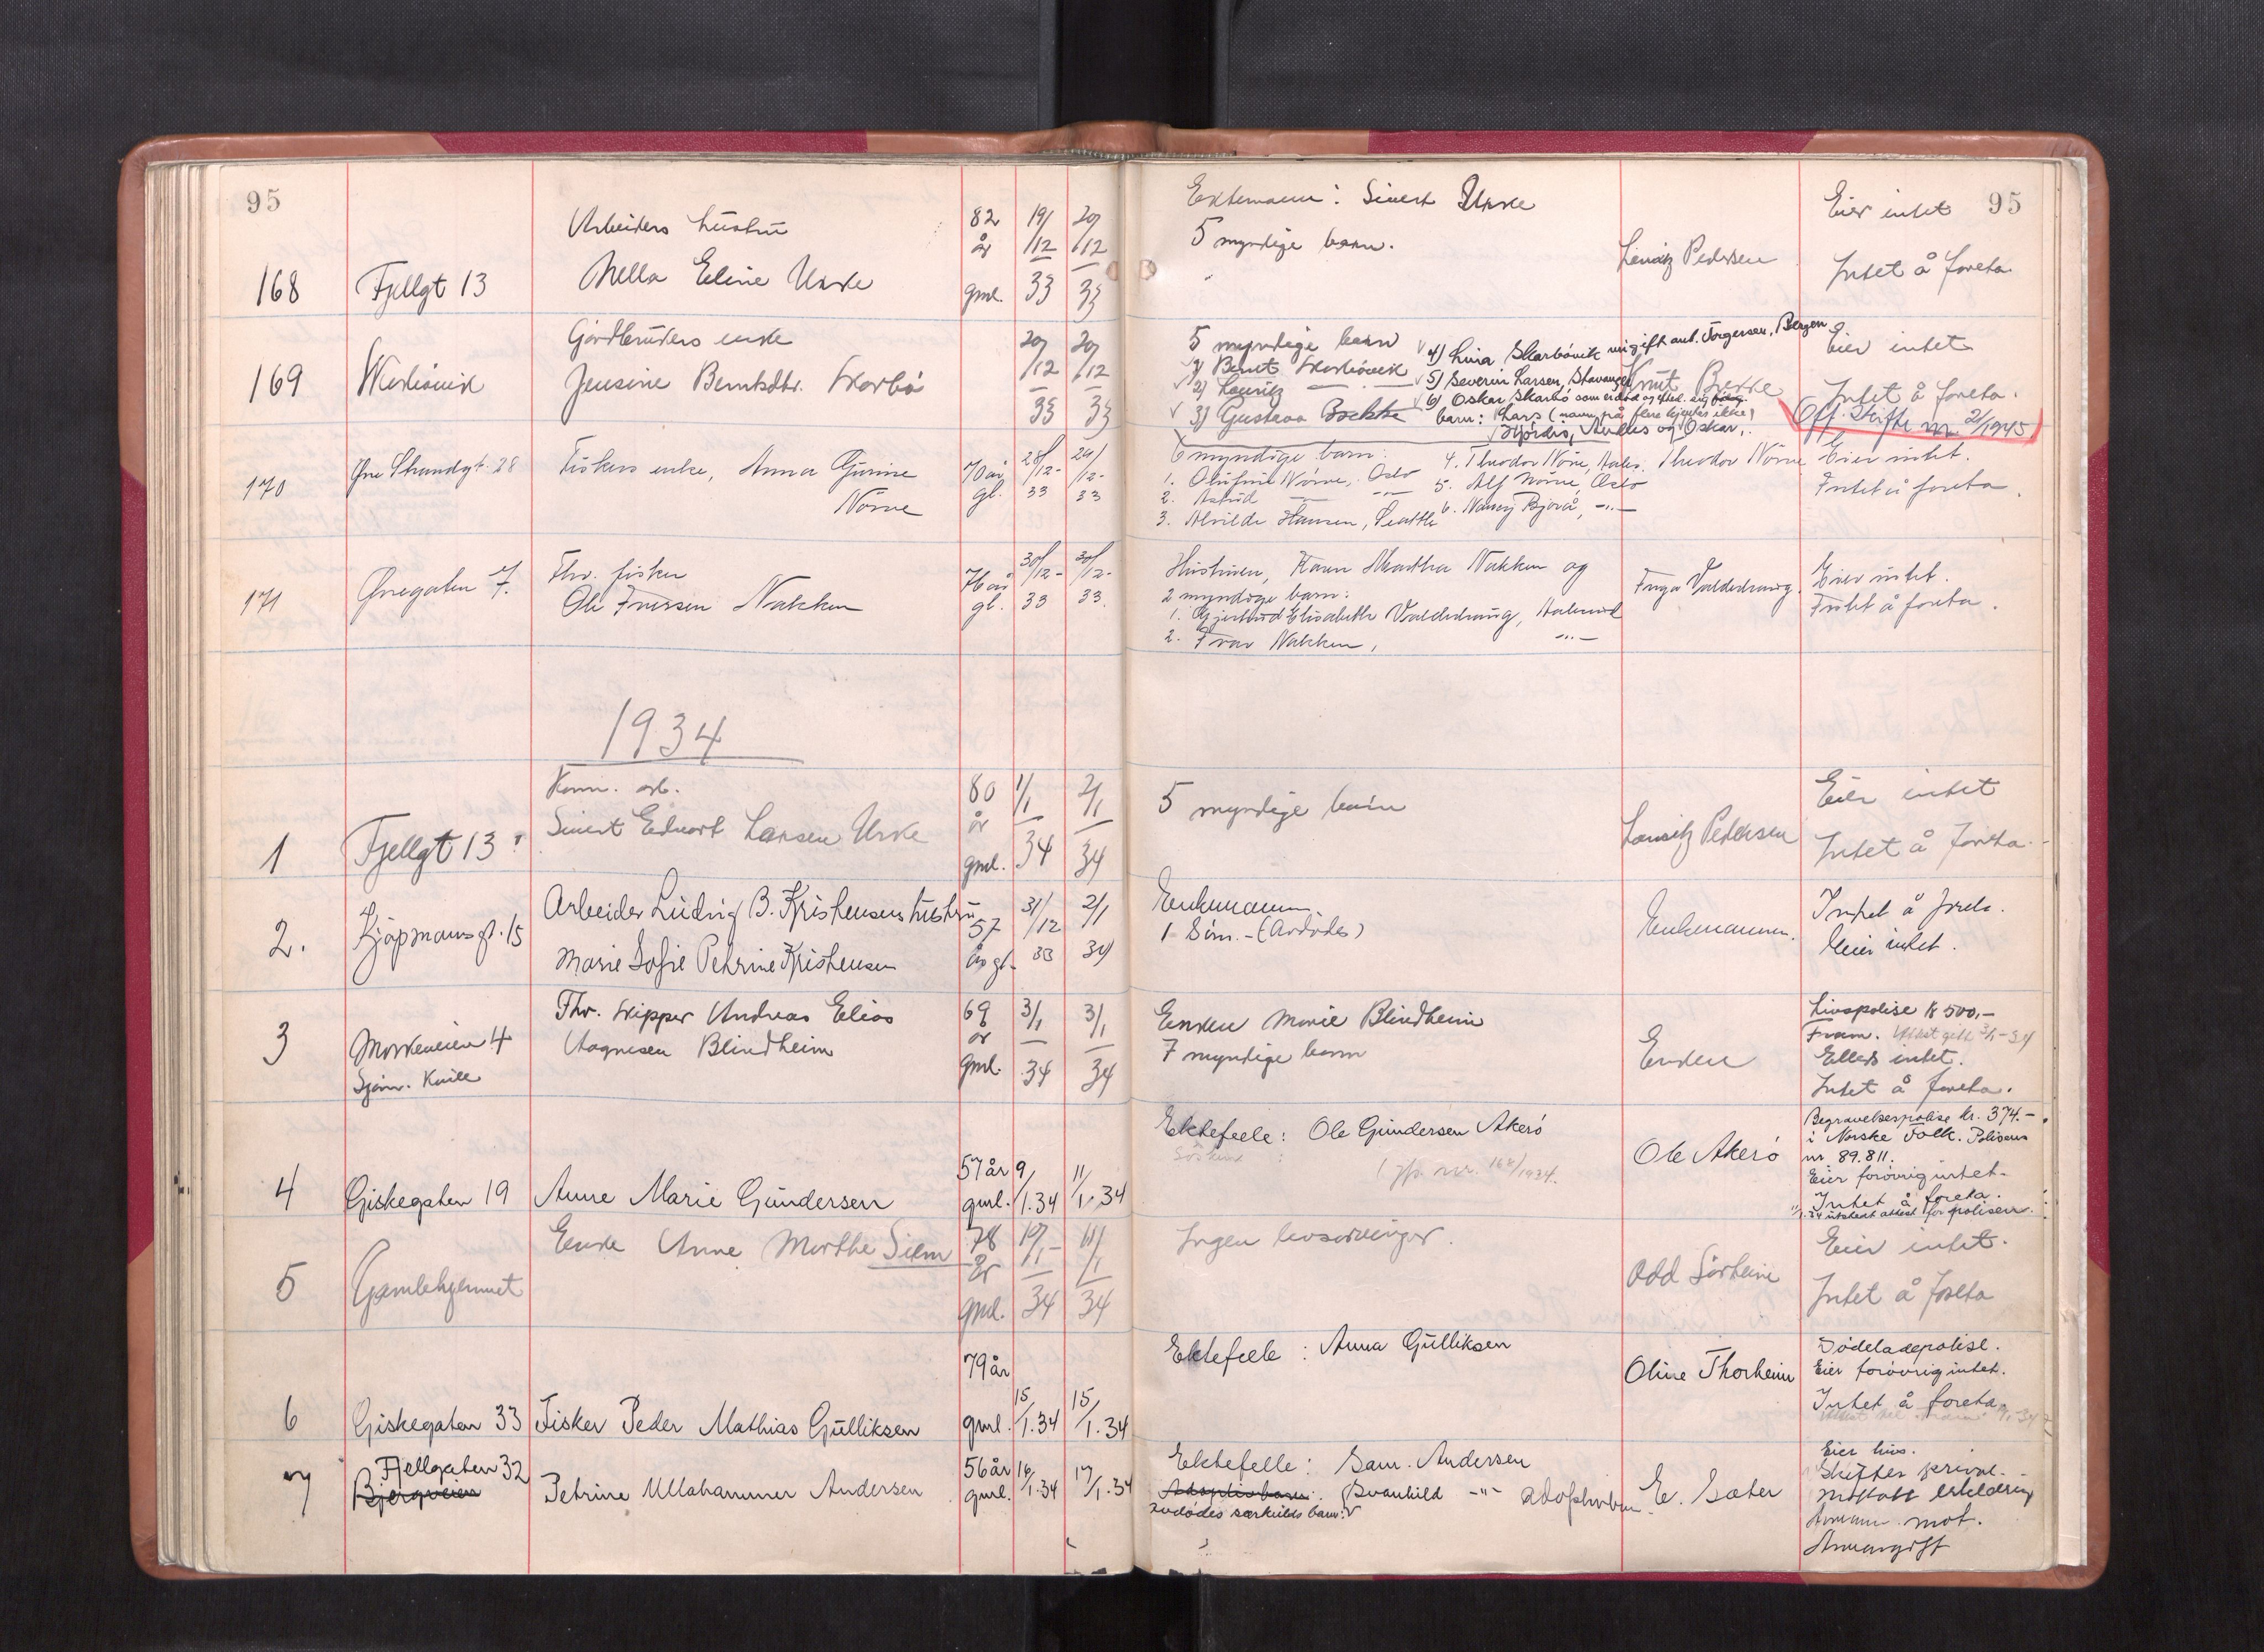 95
95
168
Fjellgt 13
Arbeiders hustru
Nella Eline Urke
82
år
gml.
19/
/12
33
20/
/12
33
Ektemann: Sivert Urke
5 myndige barn.
Lauritz Pedersen
Eier intet
Intet å foreta.
169
Gårdbrukers enke
Jensine Berntsdtr. Skarbö
20/
/12
33
20/
/12
33
5 myndige barn
1) Bernt Skarbövik
2) Lauritz — " —
3) Gustava Bakke
4) Lina Skarbövik ugift ant. Torgersen, Bergen
5) Severin Larsen, Stavanger
6) Oskar Skarbö som er död og
barn: Lars (navn på flere kjendes ikke)
Hjördis, Anders og Oskar,
Knut Bakke
Eier intet
Intet å foreta.
Off. skifte nr 2/1945
170
Øvre Strandgt. 28
Fiskers enke, Anna Gurine
Nörve
70 år
gl.
28/
/12-
33
29/
/12-
33
6 myndige barn:
1. Olufine Nörve, Oslo
2. Astrid — " —
3. Alvilde Hansen, Seattle
4. Theodor Nörve, Aales.
5. Alf Nörve, Oslo
6. Nancy Bjørå, — " —
Theodor Nörve
Eier intet.
Intet å foreta.
171
Øvregaten 7.
Fhv. fisker
Ole Iversen Nakken
76 år
gl.
30/
/12-
33
30/
/12-
33.
Hustruen, Karen Martha Nakken og
2 myndige barn:
1. Gjertrud Elisabeth Valderhaug, Aalesund
2. Ivar Nakken, — " —
Inga Valderhaug.
Eier intet.
Intet å foreta.
1934
1
Fjellgt 13
Kom. arb.
Sivert Edvart Larsen Urke
80
år
gml.
1/
/1
34
2/
/1
34
5 myndige barn
Lauritz Pedersen
Eier intet
Intet å foreta.
2.
Kjøpmannsgt. 15
Arbeider Ludvig B. Kristensens hustru
Marie Sofie Petrine Kristensen
57
år gl.
31/
/12
33
2/1
34
Enkemannen.
1 Sönn. - (Avdödes)
Enkemannen.
Intet å foreta.
Eier intet.
3
Morkeveien 4
Fhv. skipper Andreas Elias
Aagnesen Blindheim
69
år
gml.
3/1
34
3/1
34
Enken Marie Blindheim
7 myndige barn
Enken
Livspolise kr 500,-
Fram.
Ellers intet.
Intet å foreta.
4
Giskegaten 19
Anne Marie Gundersen
57 år
gml.
9/
1.34
11/
1.34
Ektefelle: Ole Gundersen Akerö
Söskend :
(jfr. nr. 168/1934.
Ole Akerö
Begravelsespolise kr. 374.-
i Norske Folk. Polisens
nr. 89.811.
Eier forövrig intet.
Intet å foreta.
11/1.34 utstedt attest for polisen.
5
Gamlehjemmet
Enke Anne Marthe Siem
78
år
gml.
10/
/1
34
11/
/1
34
Ingen livsarvinger.
Odd Sörheim
Eier intet.
Intet å foreta
6
Giskegaten 33
Fisker Peder Mathias Gulliksen
79 år
gml.
15
/1.34
15
/1.34
Ektefelle: Anna Gulliksen
Oline Thorheim
Dödeladepolise.
Eier forövrig intet.
Intet å foreta.
7
Fjellgaten 32
Bjergveien
Petrine Ullahammer Andersen
56 år
gml.
16
/1.34
17
/1.34
Ektefelle: Sam. Andersen
Adoptivbarn: Svanhild — " — adoptivbarn.
avdödes særkuldsbarn:
E. Sæter
Eier hus.
Skiftes privat.
Mottatt erklæring
mot.
Arveavgift